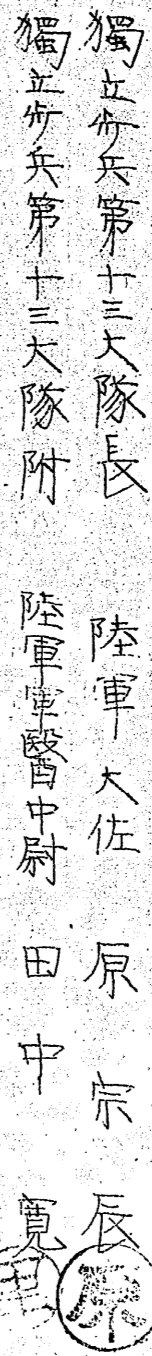 獨立步兵第十三大隊長 陸軍大佐 原 宗 辰
獨立步兵第十三大隊附 陸軍軍醫中尉 田 中 寬
原